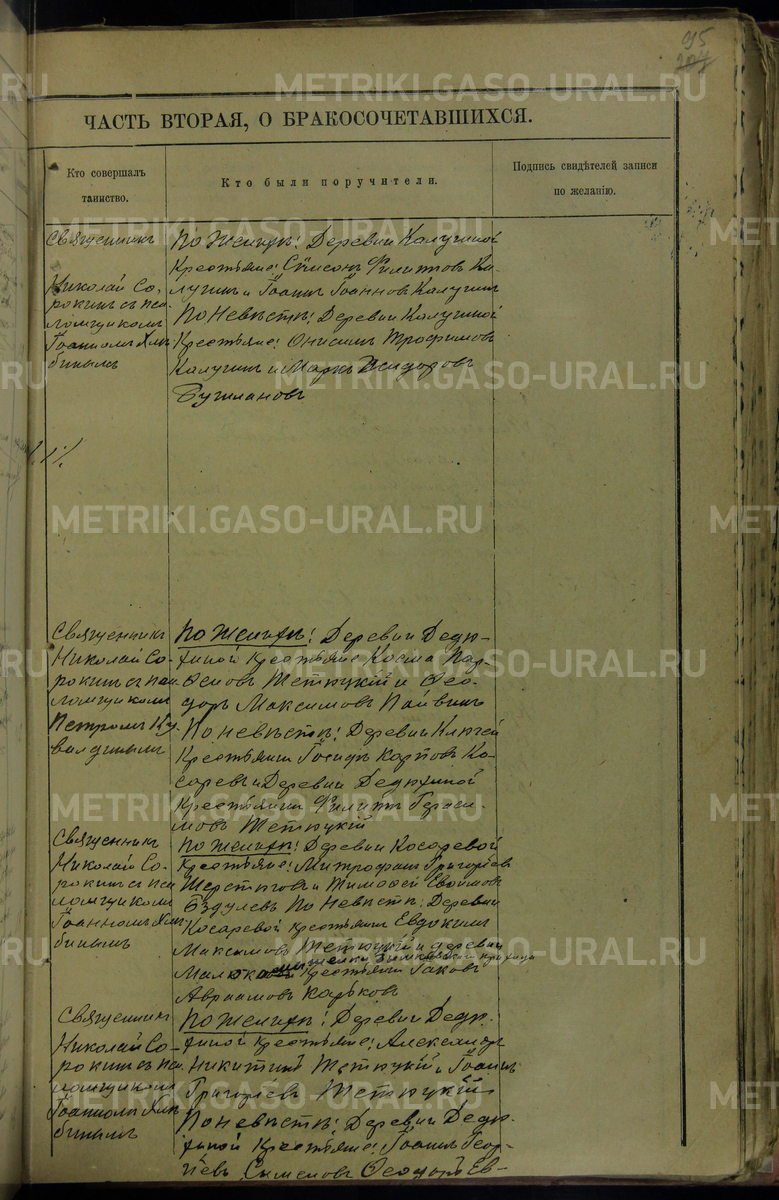 95
204
ЧАСТЬ ВТОРАЯ, О БРАКОСОЧЕТАВШИХСЯ.
Кто совершалъ
таинство.
Кто были поручители.
Подпись свидѣтелей записи
по желанію.
Священникъ
Николай Со-
рокинъ съ пса-
ломщикомъ
Іоанномъ Хле-
бинымъ
По Женихѣ: Деревни Калугиной
Крестьяне: Филиповъ Ка-
лугинъ и Іоаннъ Іоанновъ Калугинъ
По Невѣстѣ: Деревни Калугиной
Крестьяне: Онисимъ Трофимовъ
Калугинъ и Маркъ Исидоровъ
Священникъ
Николай Со-
рокинъ съ пса-
ломщикомъ
Петромъ Ку-
валдинымъ
По Женихѣ: Деревни Дедю-
хиной крестьяне Косма Пар-
ѳеновъ и Ѳео-
доръ Максимовъ Пайвинъ
По невѣстѣ: Деревни Ключей
Крестьянинъ Іосифъ Карповъ Ко-
саревъ и Деревни Дедюхиной
Крестьянинъ Филиппъ Гераси-
мовъ
Священникъ
Николай Со-
рокинъ съ пса-
ломщикомъ
Іоанномъ Хле-
бинымъ
По Женихѣ: Деревни Косаревой
Крестьяне: Митрофанъ Григорьевъ
и Тимофей
По Невѣстѣ: Деревни
Косаревой крестьянинъ Евдокимъ
Максимовъ и деревни
крестьянинъ Іаковъ
Авраамовъ Карьковъ
Священникъ
Николай Со-
рокинъ съ пса-
ломщикомъ
Іоанномъ Хле-
бинымъ
По Женихѣ: Деревни Дедю-
хиной крестьяне: Александръ
Никитинъ и Іоаннъ
Григорьевъ
По невѣстѣ: Деревни Дедю-
хиной Крестьяне: Іоаннъ Геор-
гіевъ Ѳеодоръ Ев-
METRIKI.GASO-URAL.RU